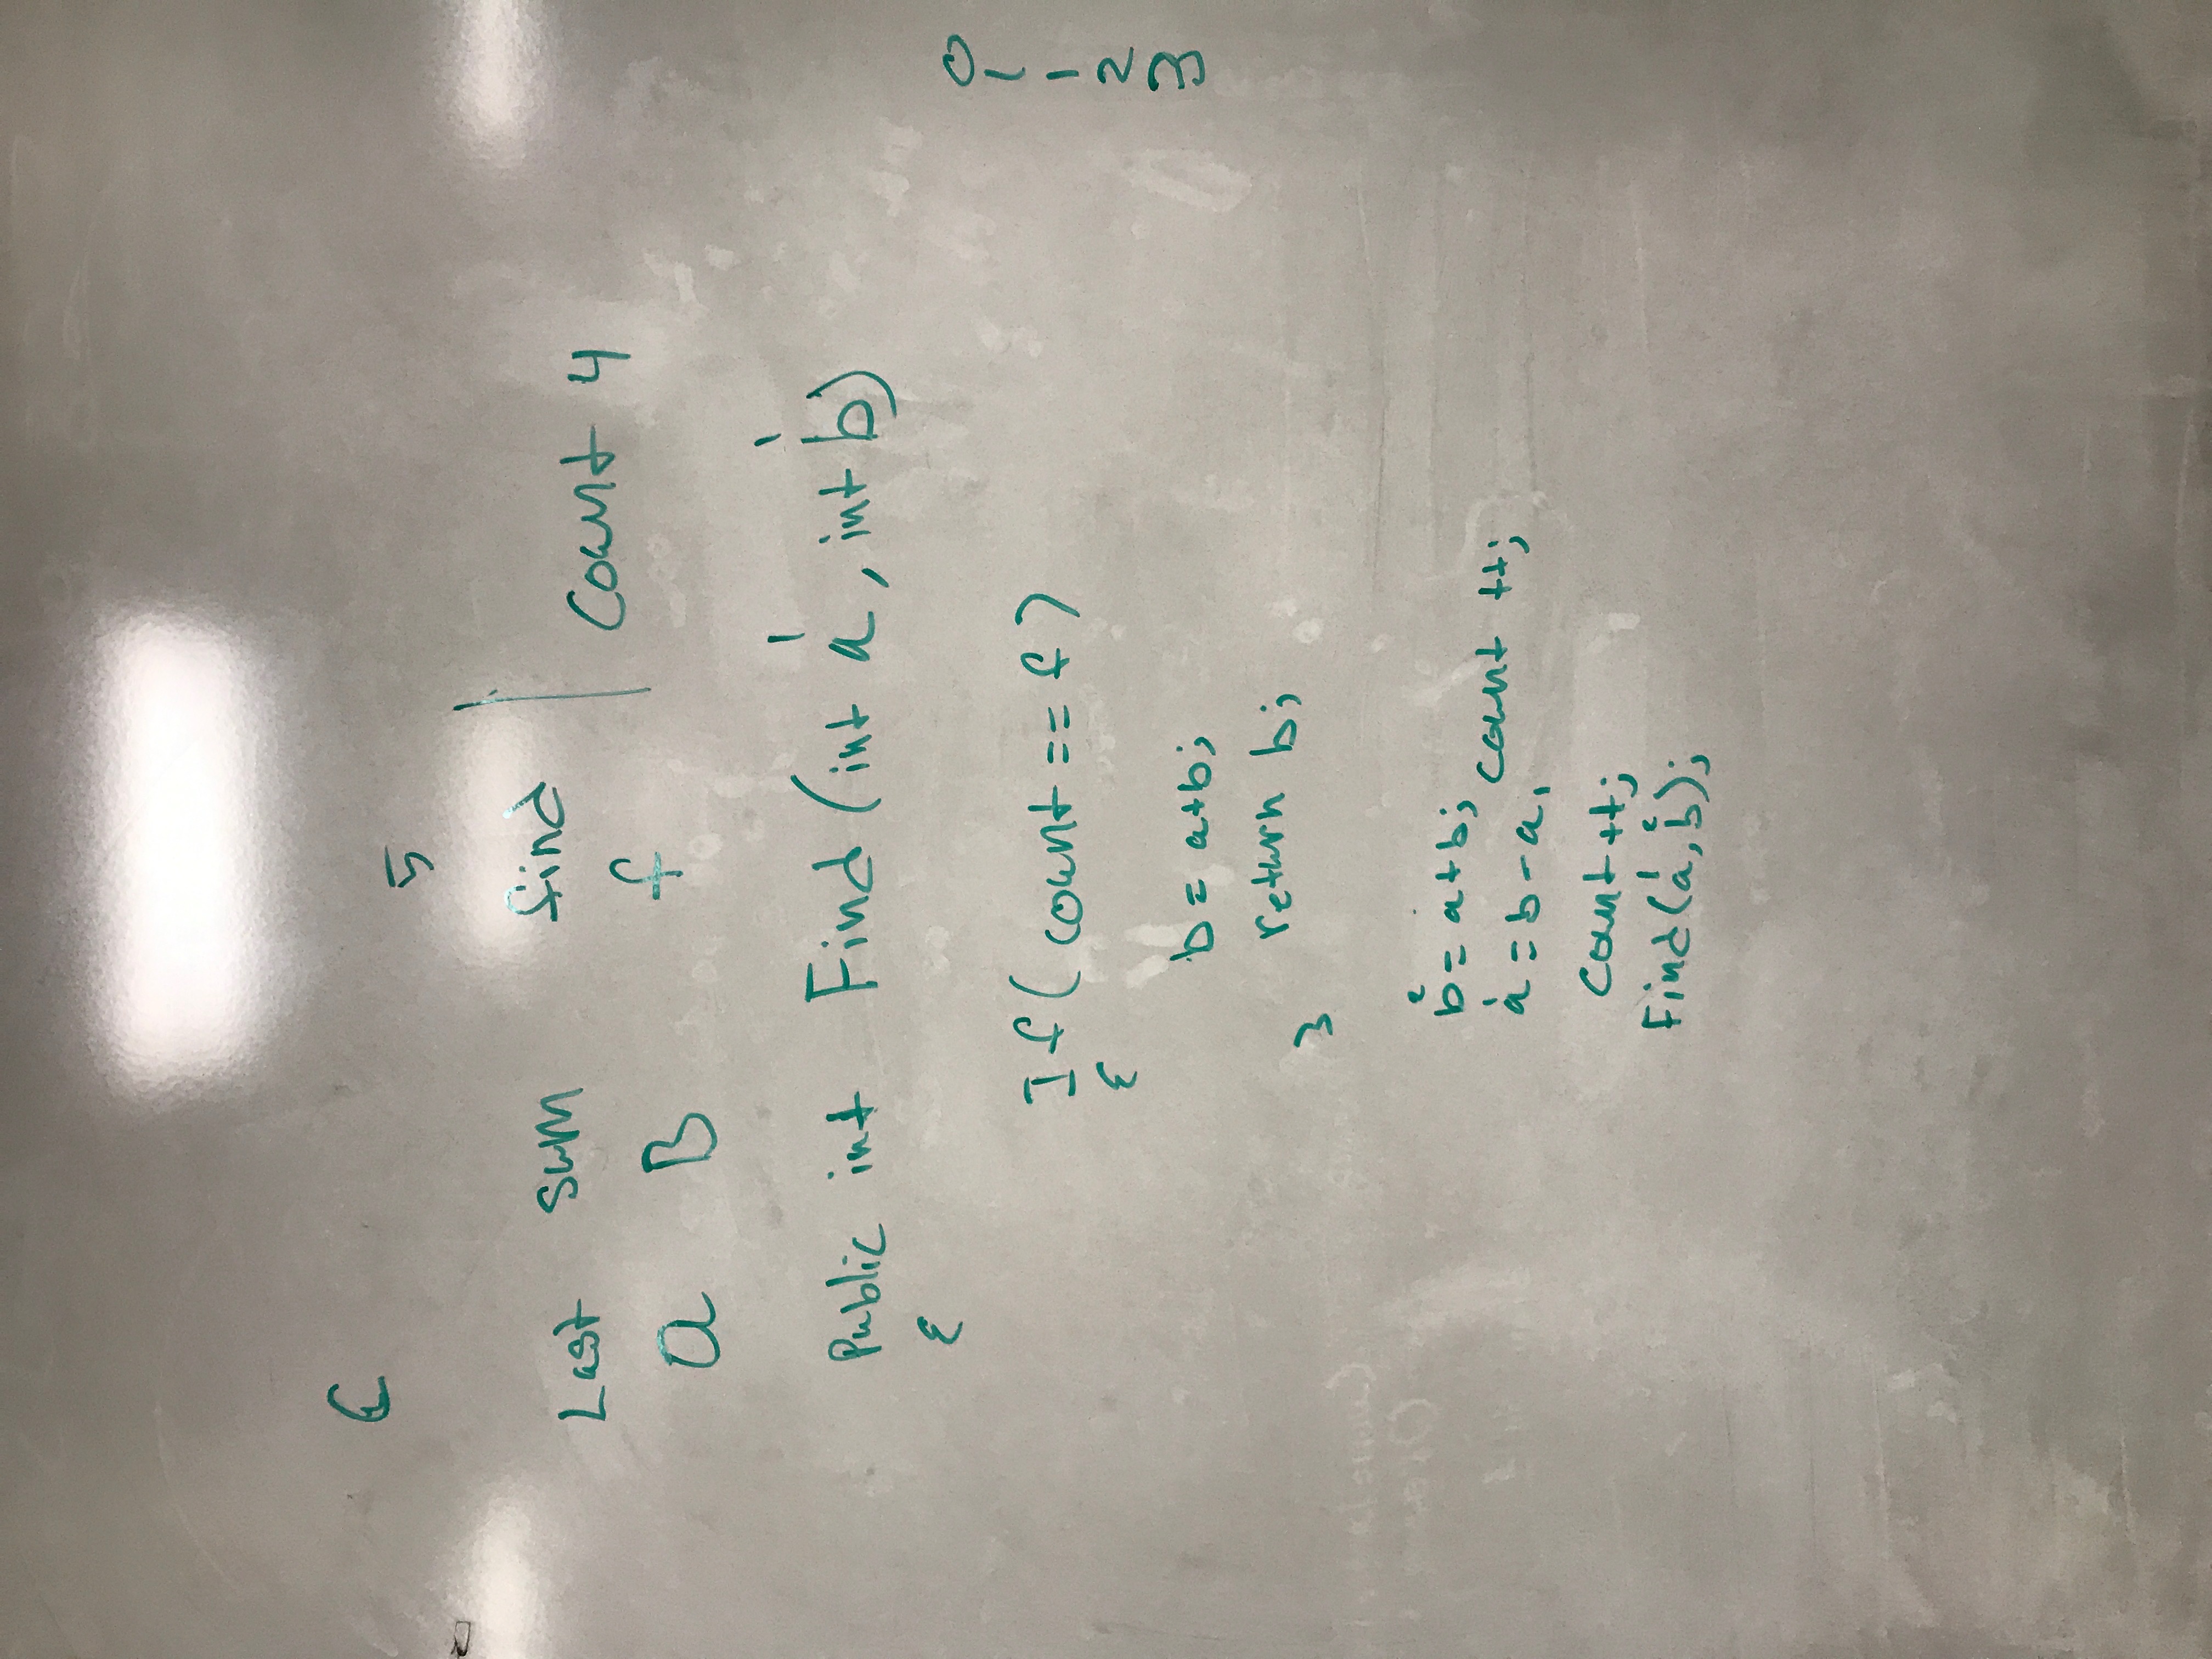 5
Last sum find | Count 4
a B f
Public int Find (int a, int b)
1 1
{
If ( count == f )
{
b = a+b;
return b;
}
2
b = a+b;
count ++;
1
a = b-a,
Count ++;
1 2
Find(a, b);
0
1
1
2
3